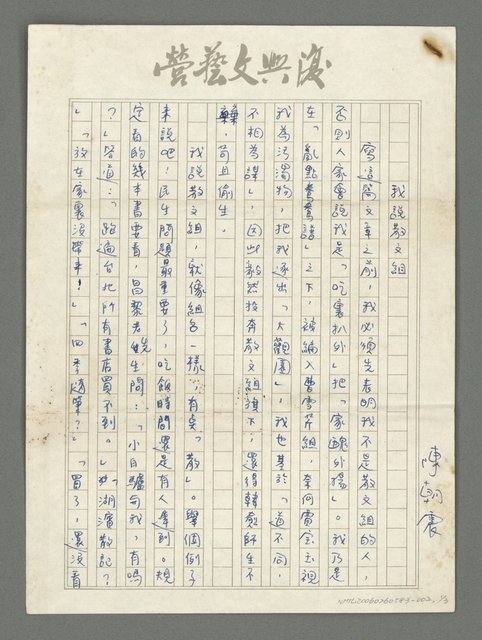 復興文藝營
我說散文組
陳朝震
寫這篇文章之前，我必須先表明我不是散文組的人，
否則人家會說我是「吃裏扒外」把「家醜外揚」。我乃是
在「亂點鴛鴦譜」之下，被編入曹雪芹組，奈何賈宝玉視
我為污濁物，把我逐出「大觀園」，我也基於「道不同，
不相為謀」，因此毅然投奔散文組旗下，還得韓愈師生不
棄，苟且偷生。
我說散文組，就像組名一樣，有夠「散」。舉個例子
來說吧！民生問題最重要了，吃飯時間還是有人遲到。規
定看的幾本書要看，昌黎老先生問：「小白驢与我，有嗎
？」答道：「跑遍台北所有書店買不到。」「湖濱散記？
」「放在家裏没帶來！」「四季隨筆？」「買了，還沒看
NMTL20060260783-002, 1/3